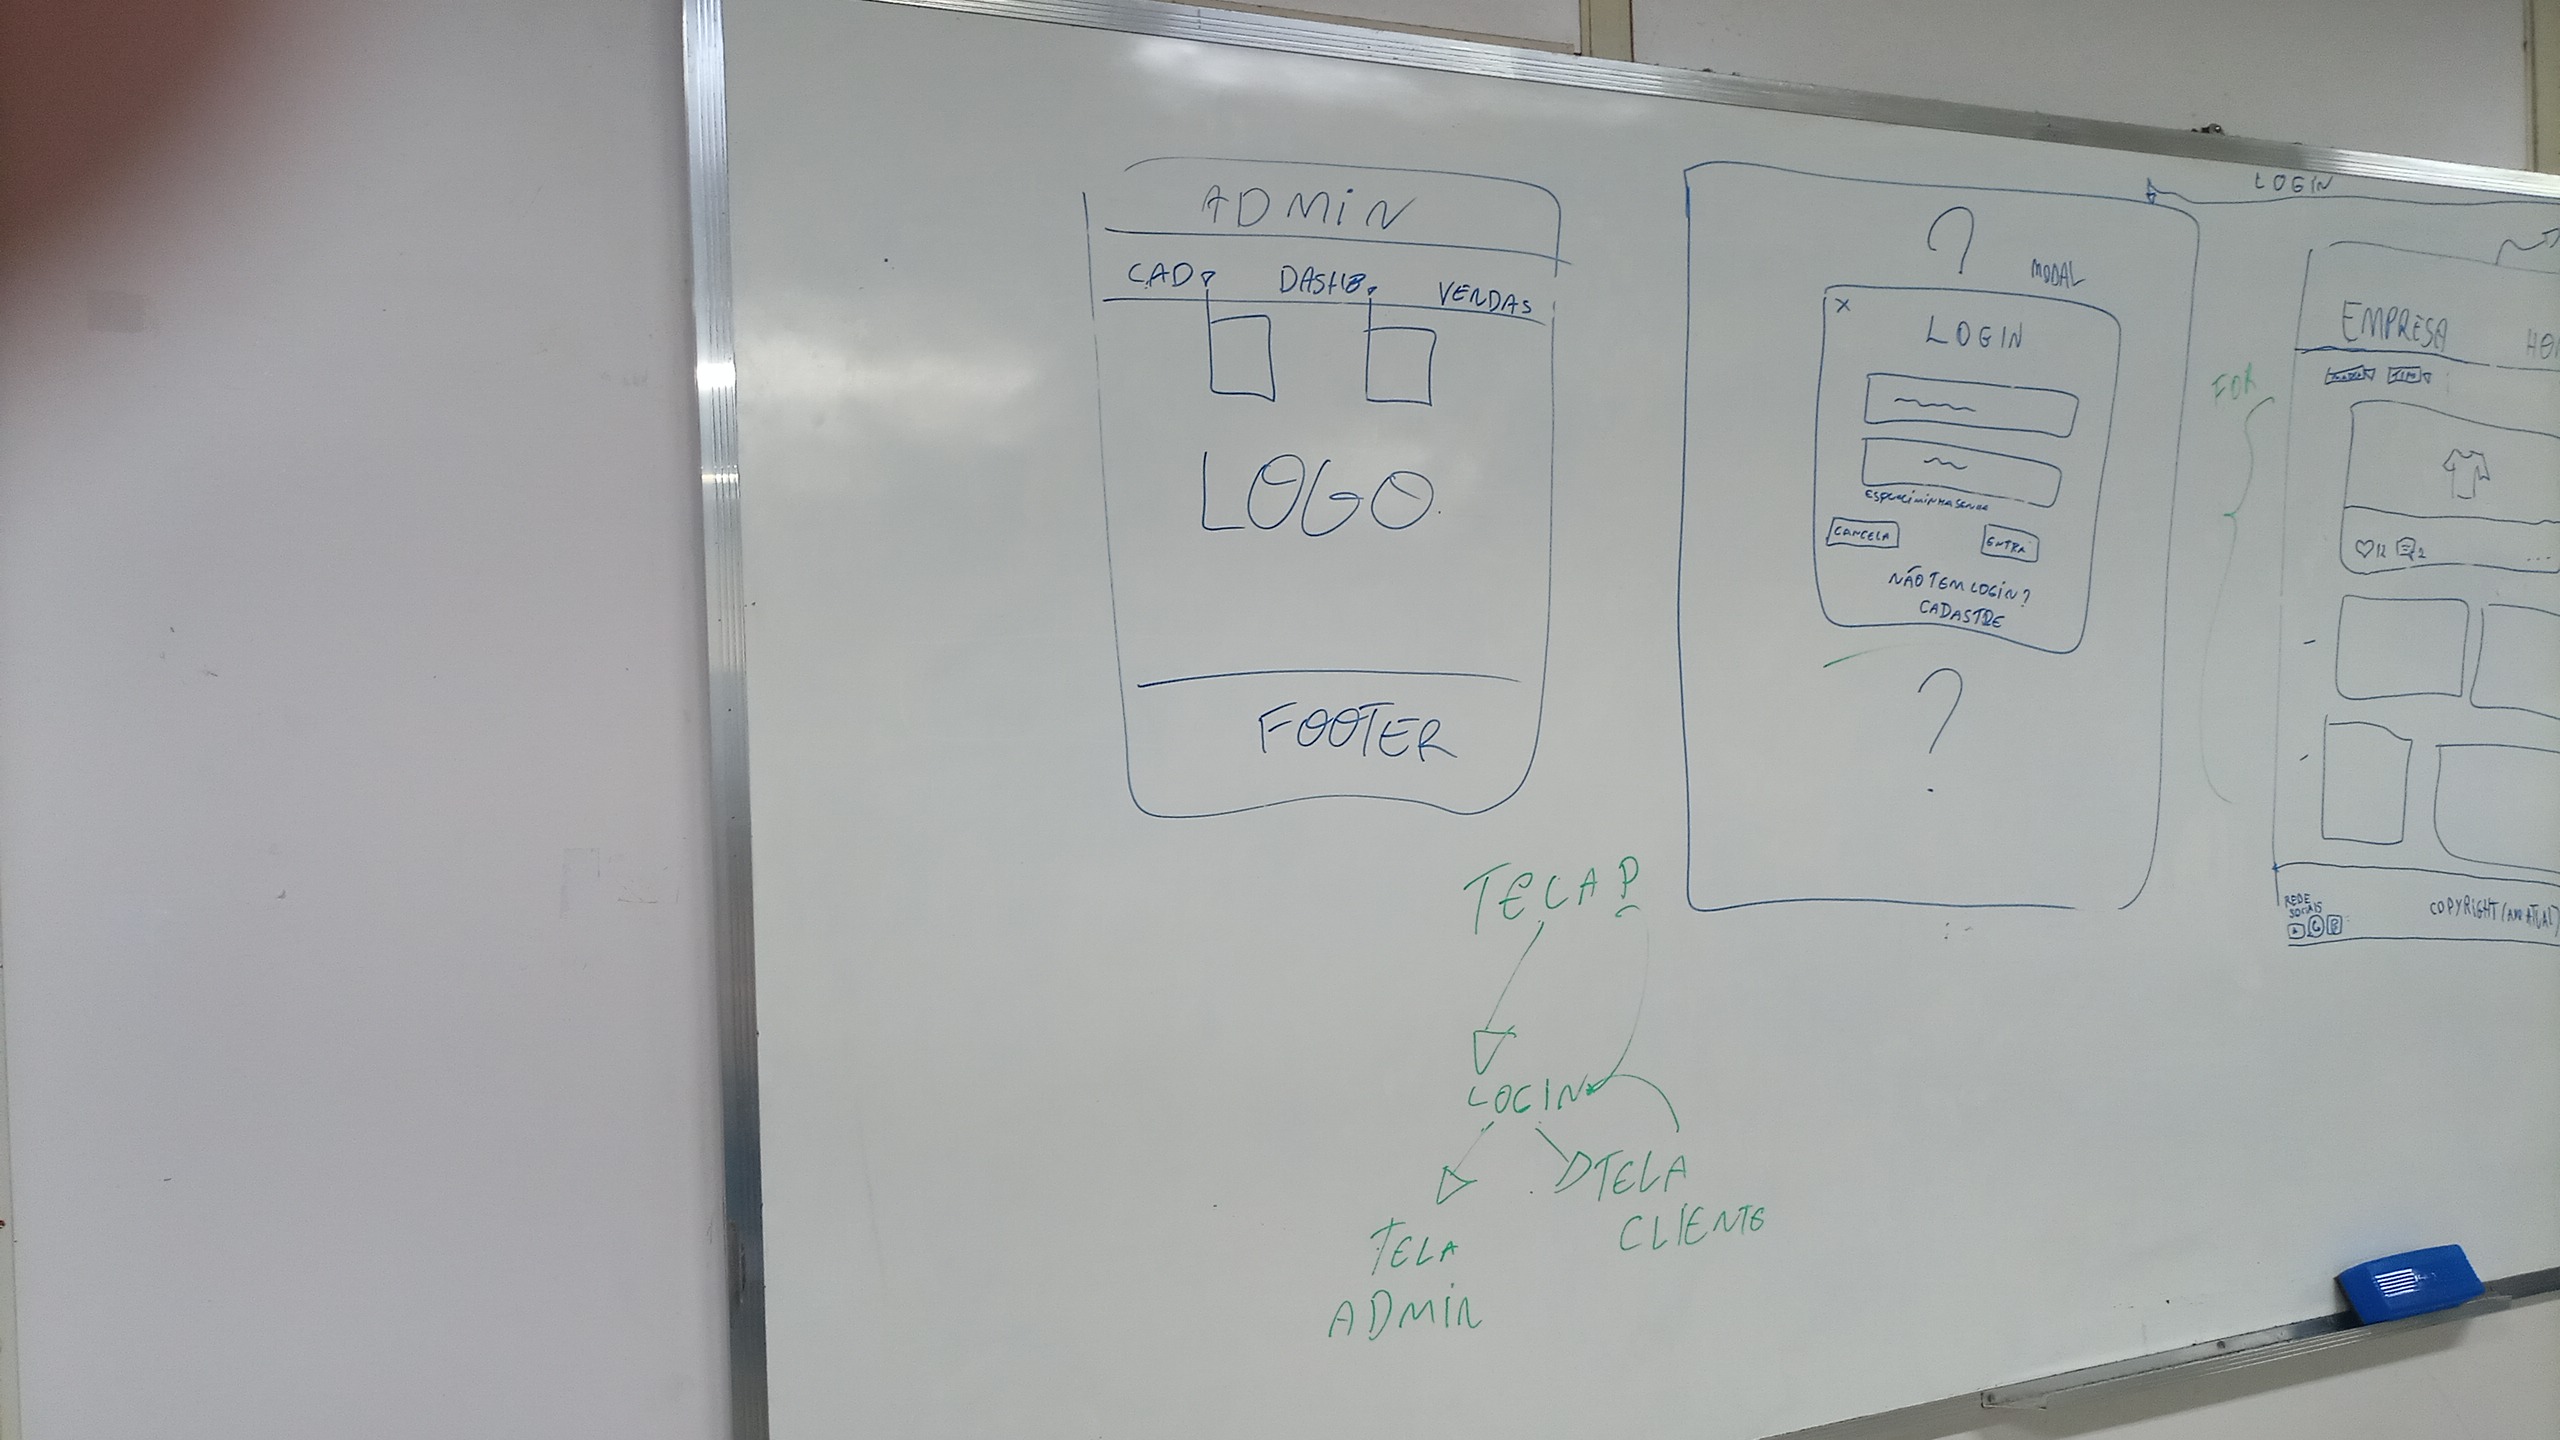 ADMIN
CAD
DASHB.
VENDAS
LOGO
FOOTER
?
MODAL
X
LOGIN
ESQUECI MINHA SENHA
CANCELA
ENTRA
NÃO TEM LOGIN?
CADASTRE
?
LOGIN
FOR
EMPRESA
HOM
TIPO
12
2
...
REDE
SOCIAIS
COPYRIGHT (ANO ATUAL)
LOGIN
TELA
ADMIN
TELA
CLIENTE